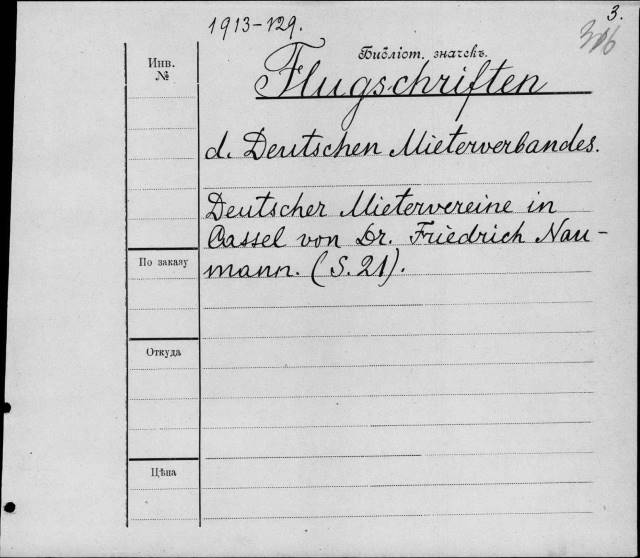 3.
1913-129.
316
Библіот. значекъ.
Инв.
№
Flugschriften
d. Deutschen Mieterverbandes.
Deutscher Mietervereine in
Cassel von Dr. Friedrich Nau-
mann. (S. 21).
По заказу
Откуда
Цѣна